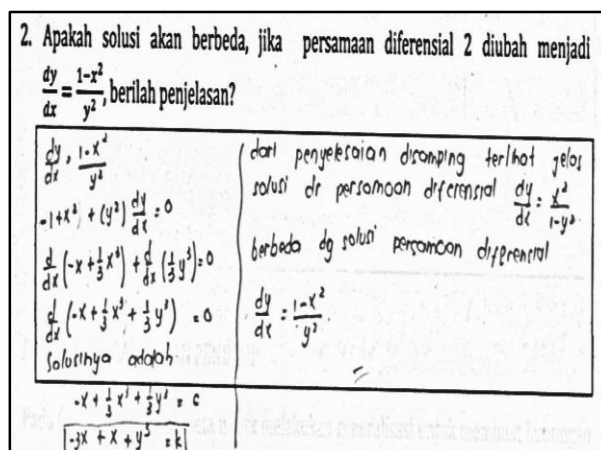 2. Apakah solusi akan berbeda, jika persamaan diferensial 2 diubah menjadi
dy/dx = 1-x²/y², berilah penjelasan?
dy/dx = 1-x²/y²
-1+x²) + (y²) dy/dx = 0
d/dx (-x + 1/3 x³) + d/dx (1/3 y³) = 0
d/dx (-x + 1/3 x³ + 1/3 y³) = 0
Solusinya adalah
-x + 1/3 x³ + 1/3 y³ = c
-3x + x + y³ = k
dari penyelesaian disamping terlihat jelas
solusi dr persamaan diferensial dy/dx = x²/1-y²
berbeda dg solusi persamaan diferensial
dy/dx = 1-x²/y²